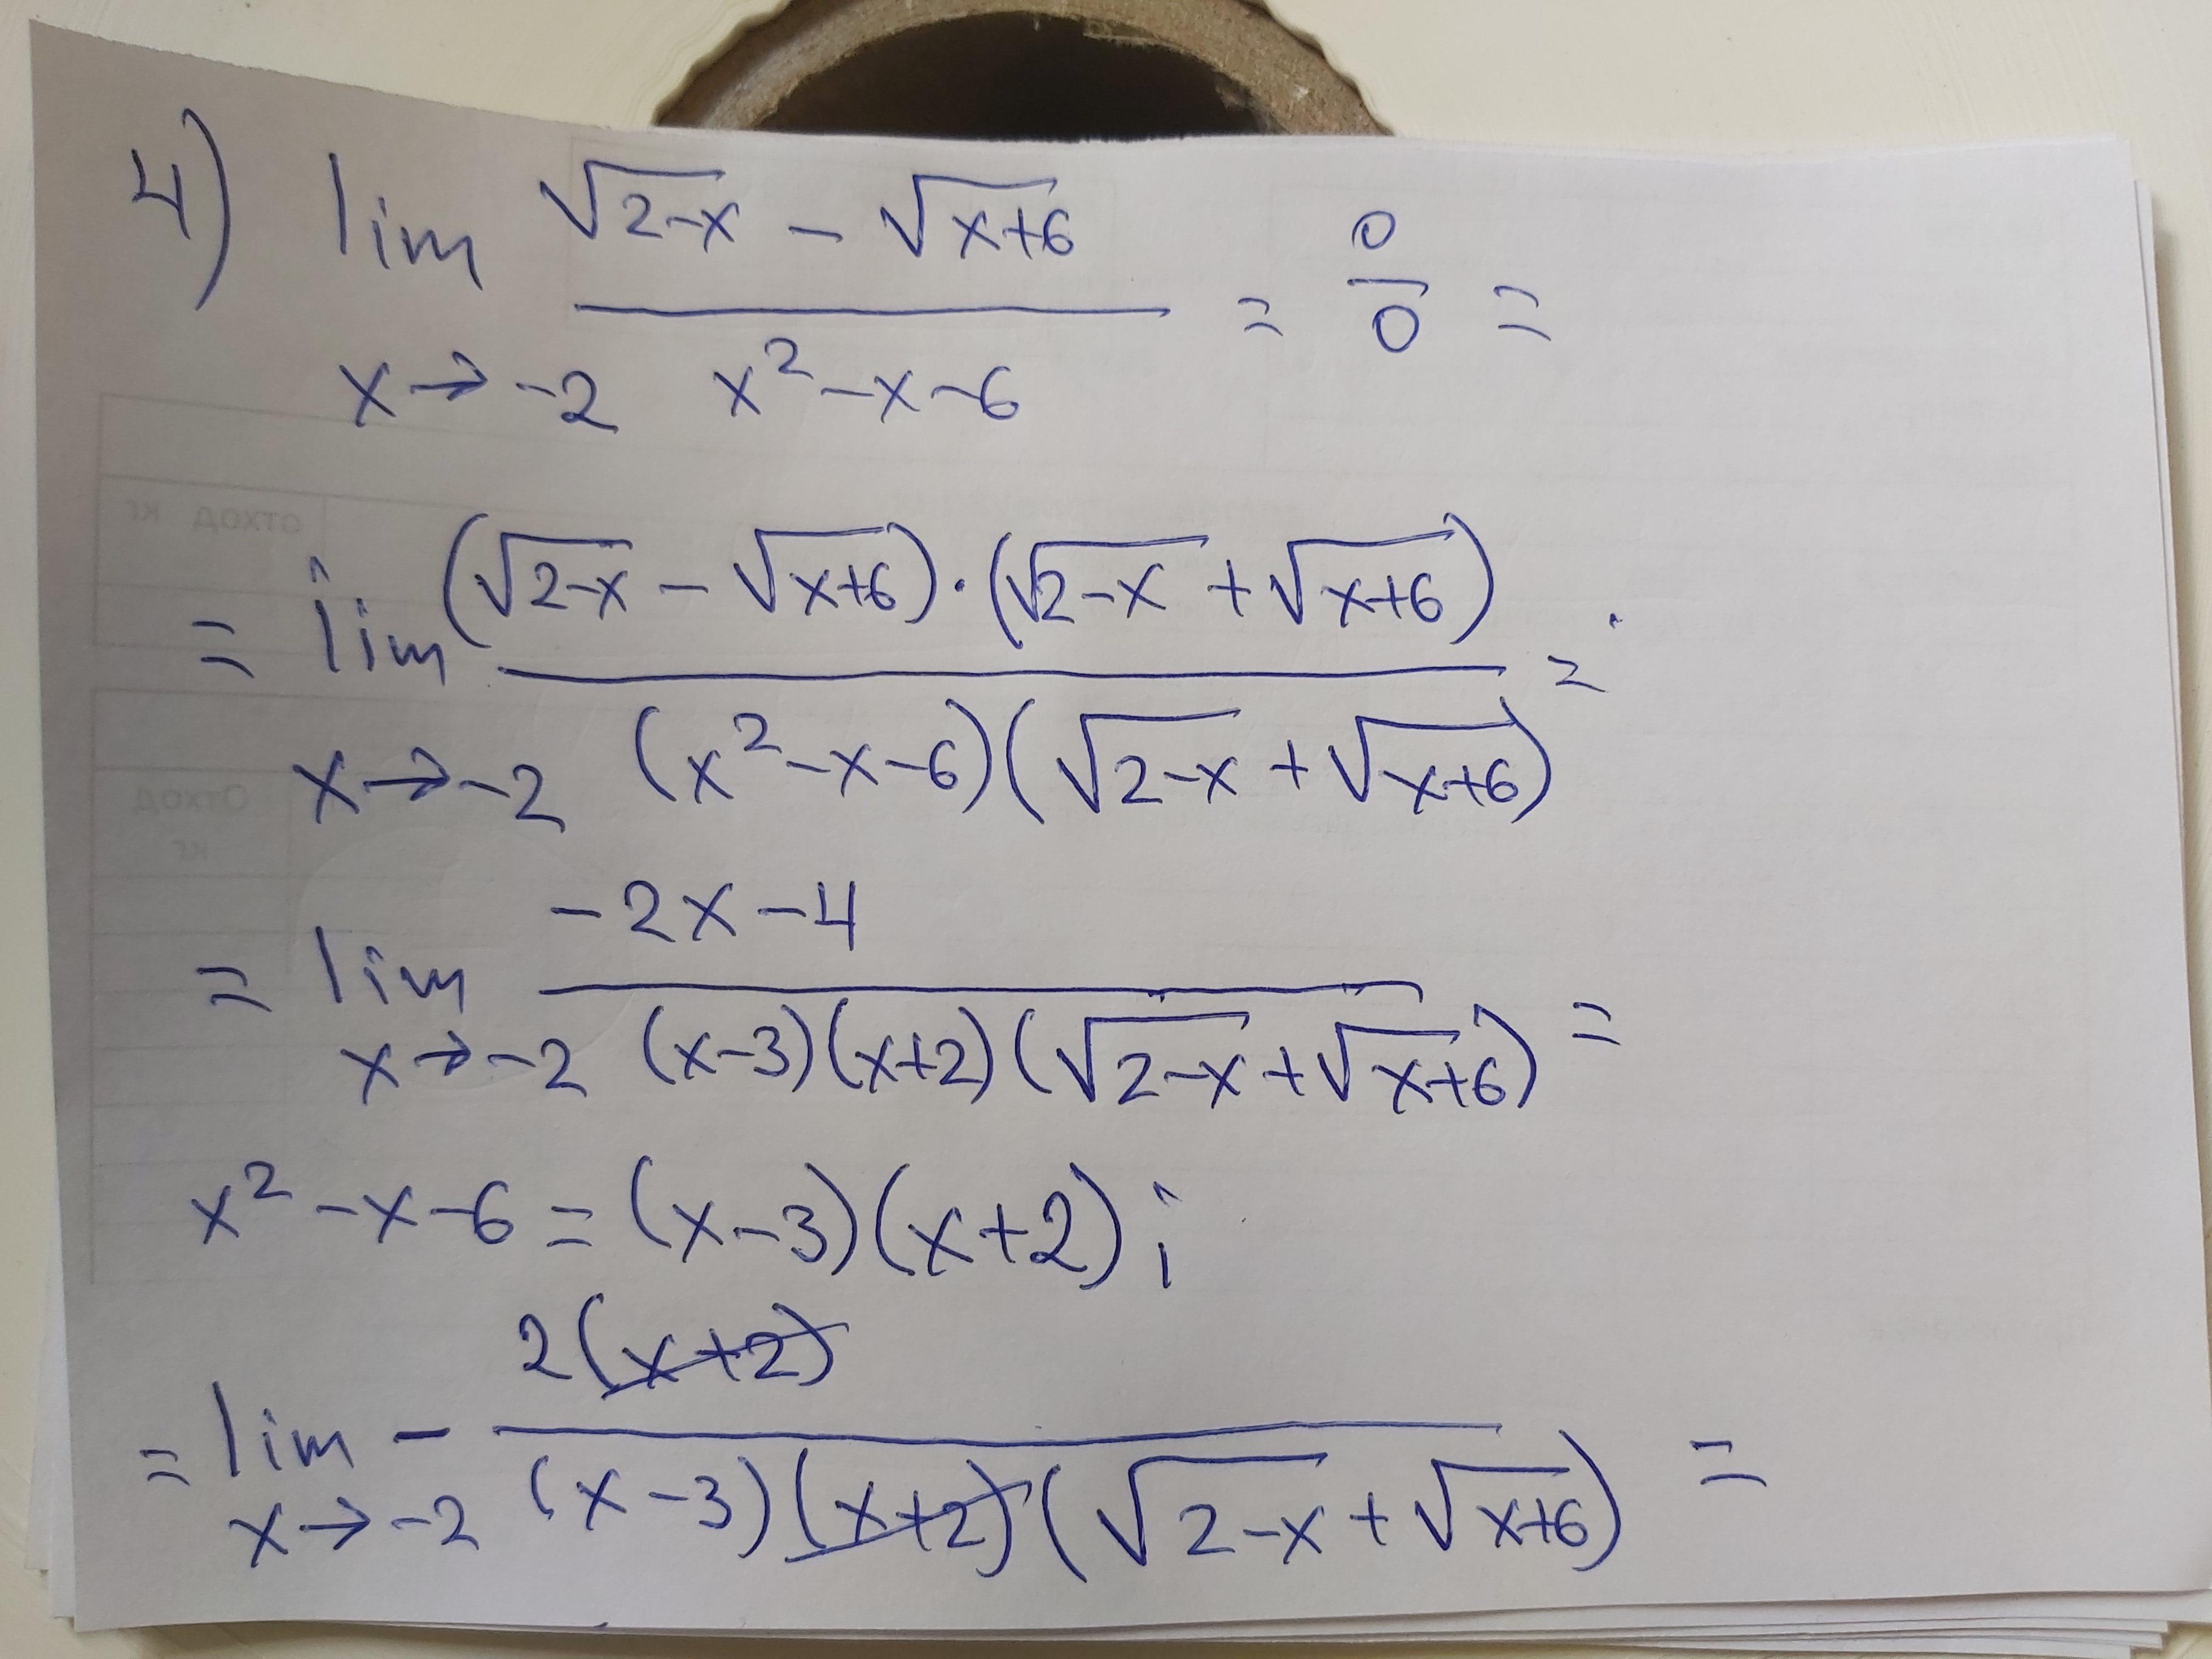 4) lim x→-2 (√(2-x) - √(x+6)) / (x² - x - 6) = 0/0 =
= lim x→-2 ((√(2-x) - √(x+6)) · (√(2-x) + √(x+6))) / ((x² - x - 6)(√(2-x) + √(x+6))) =
= lim x→-2 (-2x - 4) / ((x-3)(x+2)(√(2-x) + √(x+6))) =
x² - x - 6 = (x-3)(x+2);
= lim x→-2 - 2(x+2) / ((x-3)(x+2)(√(2-x) + √(x+6))) =
отход кг
Отход
кг